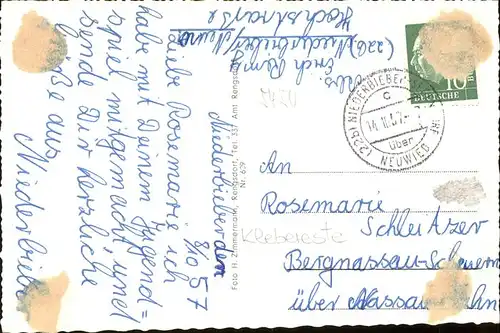 Niederbieber den
8/10 57
Liebe Rosemarie ich
habe mit Deinem Jugend=
spiel mitgemacht und
sende Dir herzliche
Grüße aus
Niederbieber
Abs. Erich
(22b) Niederbieber/Neuwied
Hochstraße
Foto H. Zimmermann, Rengsdorf, Tel. 337 Amt Rengsdorf
Nr. 609
5450
10
DEUTSCHE
(22b) NIEDERBIEBER
c
über
NEUWIED
An
Rosemarie
Schleitzer
Klebereste
Bergnassau-Scheuern
über Nassau Lahn